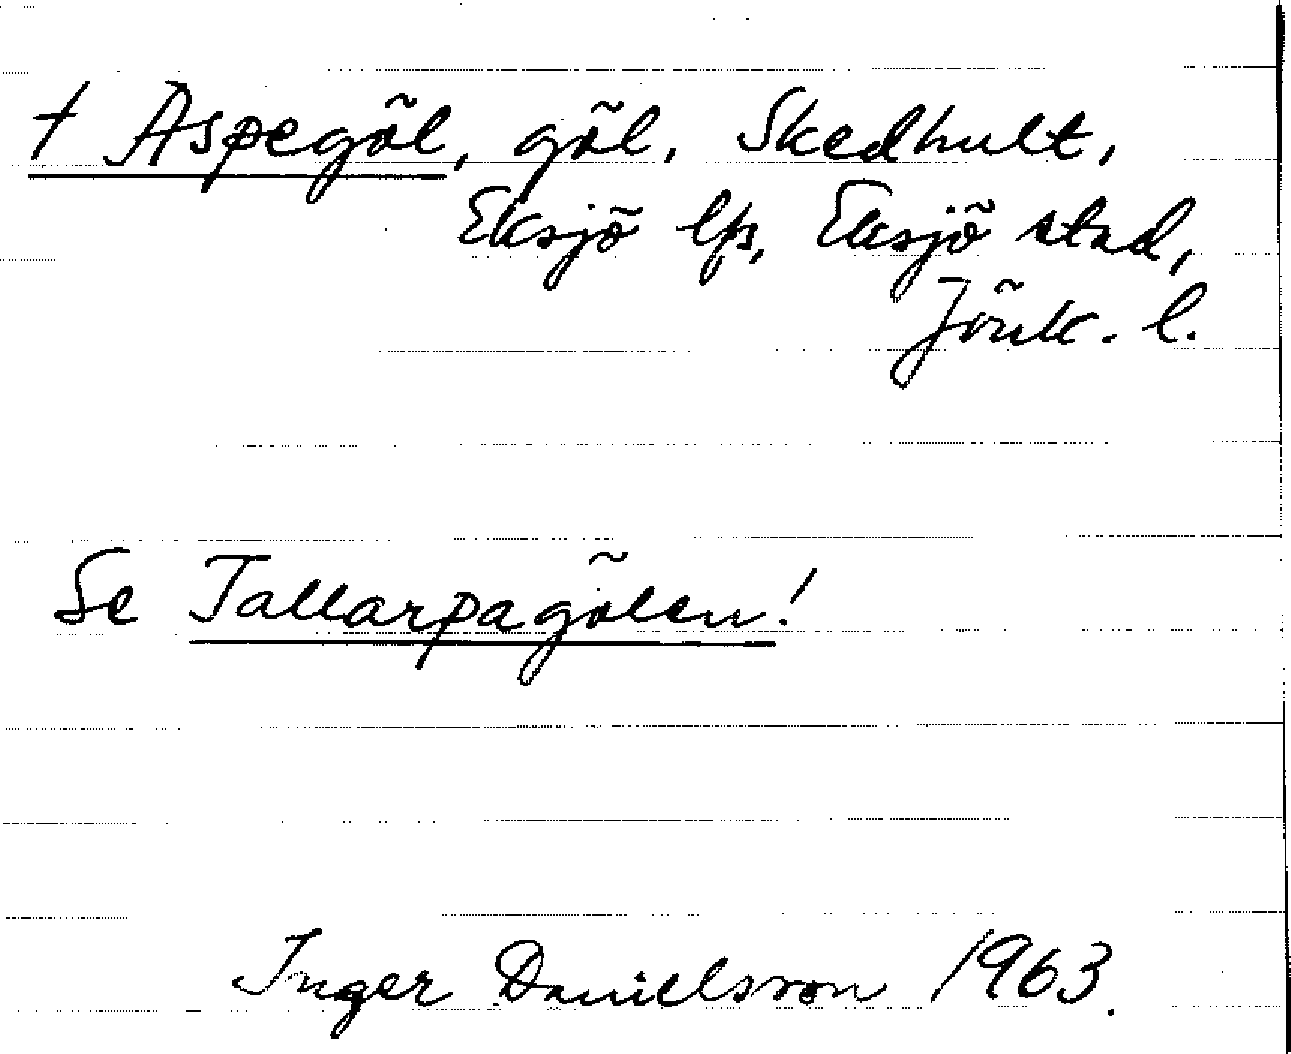 † Aspegöl, göl, Skedhult,
Eksjö lfs, Eksjö stad,
Jönk. l.
Se Tallarpagölen!
Inger Danielsson 1963.